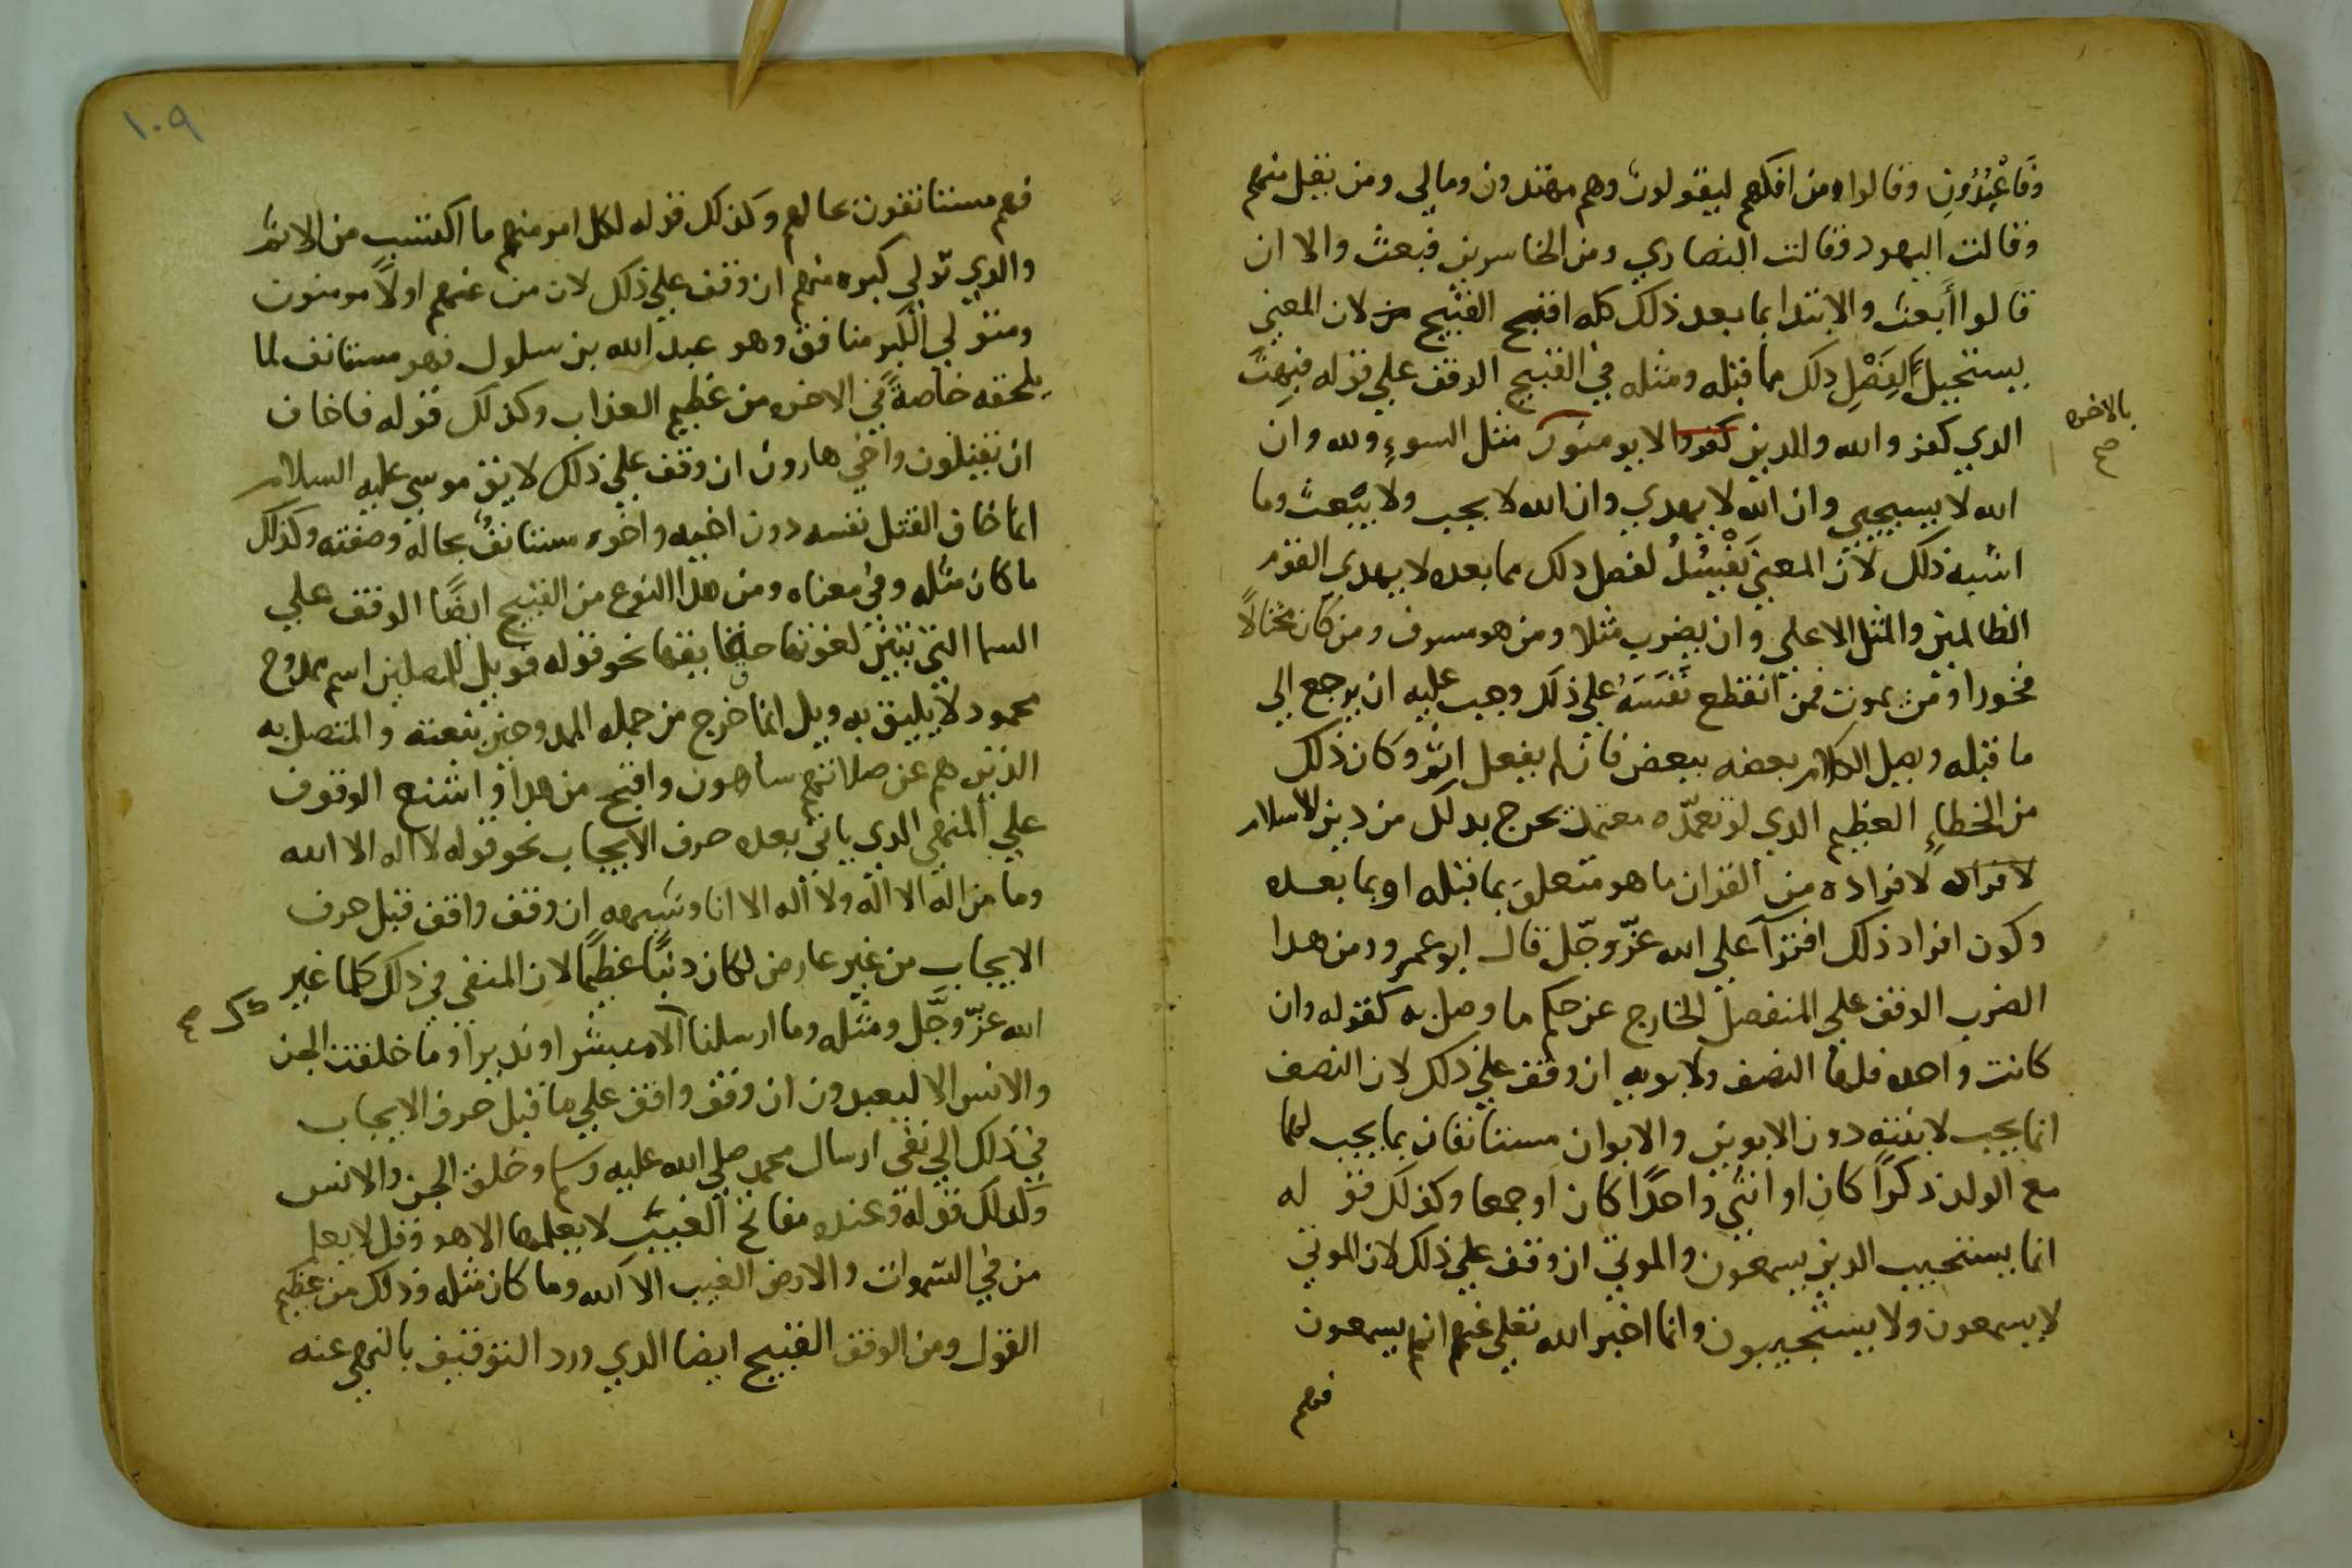 وفاعبدون وقالوا ومن افكهم ليقولون وهم مهتدون ومالي ومن يقل منهم
وقالت اليهود وقالت النصاري ومن الخاسرين فبعث والا ان
قالوا أبعث والابتدا بما بعد ذلك كله اقبح القبيح لان المعني
يستحيل بفصل ذلك مما قبله ومثله في القبيح الوقف علي قوله فبهت
الدي كفر والله والدين لايومنون مثل السوء ولله وان
بالاخره صح
الله لا يستحيي وان الله لا يهدي وان الله لا يحب ولا يبعث وما
اشبه ذلك لان المعني يفسد لفصل دلك مما بعده لا يهدي القوم
الظالمين والمثل الاعلي وان يضرب مثلا ومن هو مسرف ومن كان مختالًا
فخورا ومن يموت فمن انقطع نفسه علي ذلك وجب عليه ان يرجع الي
ما قبله ويصل الكلام بعضه ببعض فان لم يفعل اثم وكان ذلك
من الخطاء العظيم الدي لو تعمده معتمد تحرج بدلك من دين الاسلام
لافراده من القران ما هو متعلق بما قبله او بما بعده
وكون افراد ذلك افترآ علي الله عزّ وجّل قال ابو عمرو ومن هدا
الضرب الوقف علي المنفصل الخارج عن حكم ما وصل به كقوله وان
كانت واحده فلها النصف ولابويه ان وقف علي ذلك لان النصف
انما يجب لابنته دون الابوين والابوان مستانفان بما يجب لهما
مع الولد ذكرًا كان او انثي واحدًا كان او جمعا وكذلك قو له
انما يستجيب الدين يسمعون والموتي ان وقف علي ذلك لان الموتي
لا يسمعون ولا يستجيبون وانما اخبر الله تعلي عنهم انهم يسمعون
فهم
١٠٩
فهم مستانفون بحالهم وكذلك قوله لكل امر منهم ما اكتسب من الاثم
والدي تولي كبره منهم ان وقف علي ذلك لان من عنهم اولًا مومنون
ومتولي الكبر منافق وهو عبد الله بن سلول فهو مستانف لما
يلحقه خاصةً في الاخره من عظيم العذاب وكذلك قوله فاخاف
ان يقتلون واخي هارون ان وقف علي ذلك لان موسي عليه السلام
انما خاف القتل نفسه دون اخيه واخوه مستانفٌ بحاله وصفته وكذلك
ما كان مثله وفي معناه ومن هدا النوع من القبيح ايضًا الوقف علي
السما التي تبين نعوتها حقايقها نحو قوله فويل للمصلين اسم ممدوح
محمود لا يليق به ويل انما خرج من جمله الممدوحين بنعته والمتصل به
الذين هم عن صلاتهم ساهون واقبح من هدا واشنع الوقوف
علي المنفي الدي ياتي بعده حرف الايجاب نحو قوله لا اله الا الله
وما من اله الا الله ولا اله الا انا وشبهه ان وقف واقف قبل حرف
الايجاب من غير عارض لكان دنبًا عظيمًا لان المنفي في ذلك كلما غير
الله عزّ وجّل ومثله وما ارسلناك الا مبشرا ونديرا وما خلقت الجن
ك صح
والانس الا ليعبدون ان وقف واقف علي ما قبل حرف الايجاب
في ذلك الي نفي ارسال محمد صلي الله عليه وسلم وخلق الجن والانس
وكدلك قوله وعنده مفاتح الغيب لا يعلمها الا هو وقل لا يعلم
من في السموات والارض الغيب الا الله وما كان مثله وذلك من عظيم
القول ومن الوقف القبيح ايضا الدي ورد التوقيف بالنهي عنه